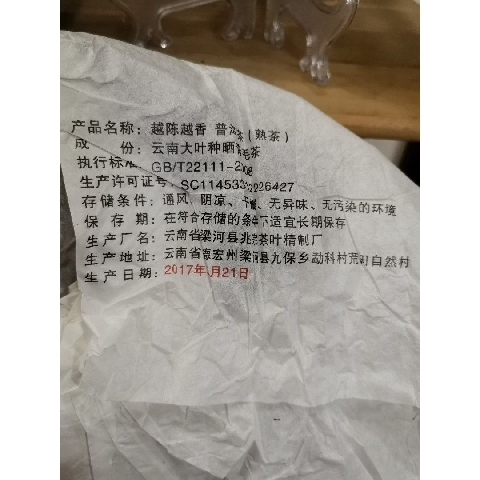 产品名称：越陈越香 普洱茶（熟茶）
成 份：云南大叶种晒青毛茶
执行标准 GB/T22111-2008
生产许可证号：SC114533
存储条件：通风、阴凉、干燥、无异味、无污染的环境
保 存 期：在符合存储的条件下适宜长期保存
生产厂名：云南省梁河县 茶叶精制厂
生产地址：云南省德宏州梁河县九保乡勐科村 自然村
生产日期：2017年 月21日